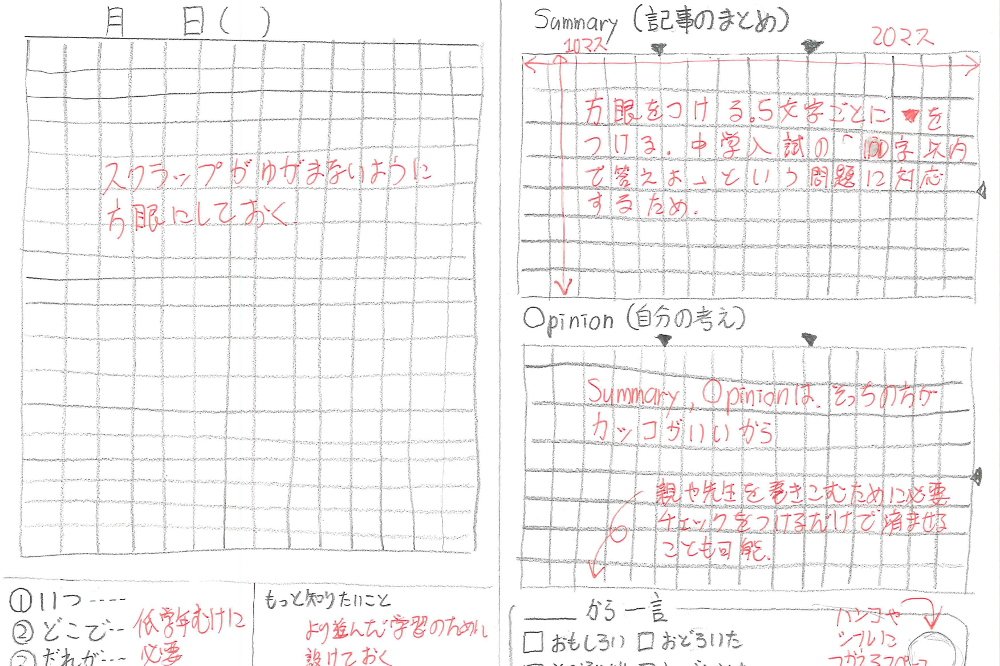 月 日( )
スクラップがゆがまないように
方眼にしておく
①いつ----
②どこで--
③だれが---
低学年むけに
必要
もっと知りたいこと
より並んだ学習のために
設けておく
Summary (記事のまとめ)
10マス
20マス
方眼をつける。5文字ごとに▼を
つける。中学入試の「100字以内
で答えよ」という問題に対応
するため.
Opinion (自分の考え)
Summary, Opinionは、そっちの方が
カッコがいいから
親や先生を巻きこむために必要
チェックをつけるだけで済ませる
ことも可能.
___から一言
□おもしろい □おどろいた
ハンコや
シールに
つかえるスペース